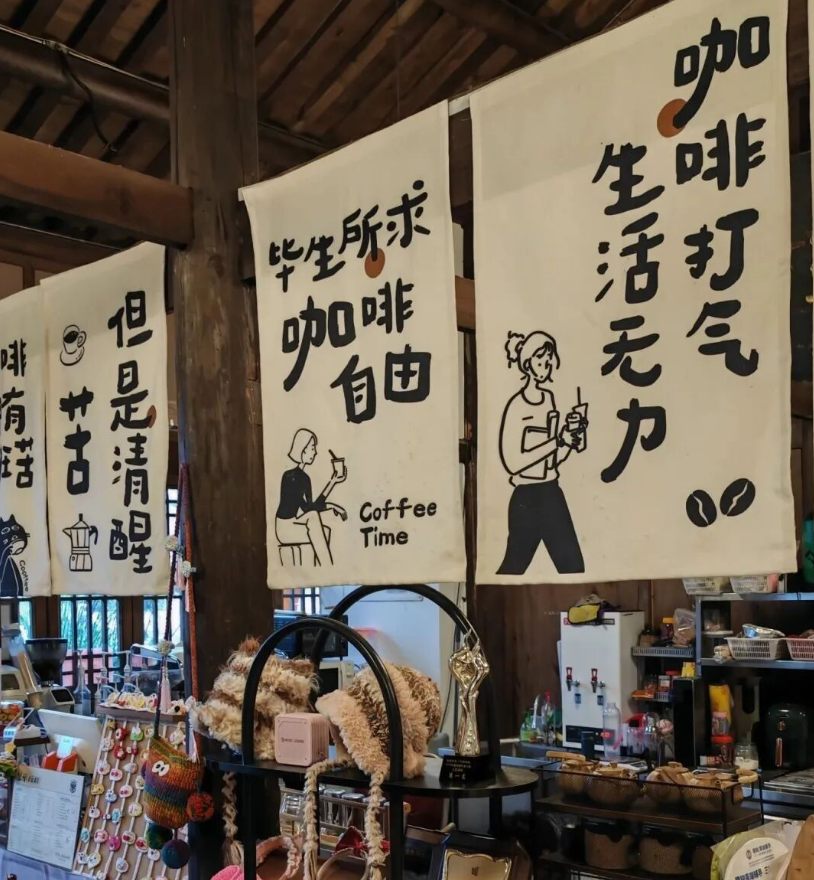 咖啡打气
生活无力
毕生所求
咖啡
自由
Coffee
Time
但是清醒
苦
啡